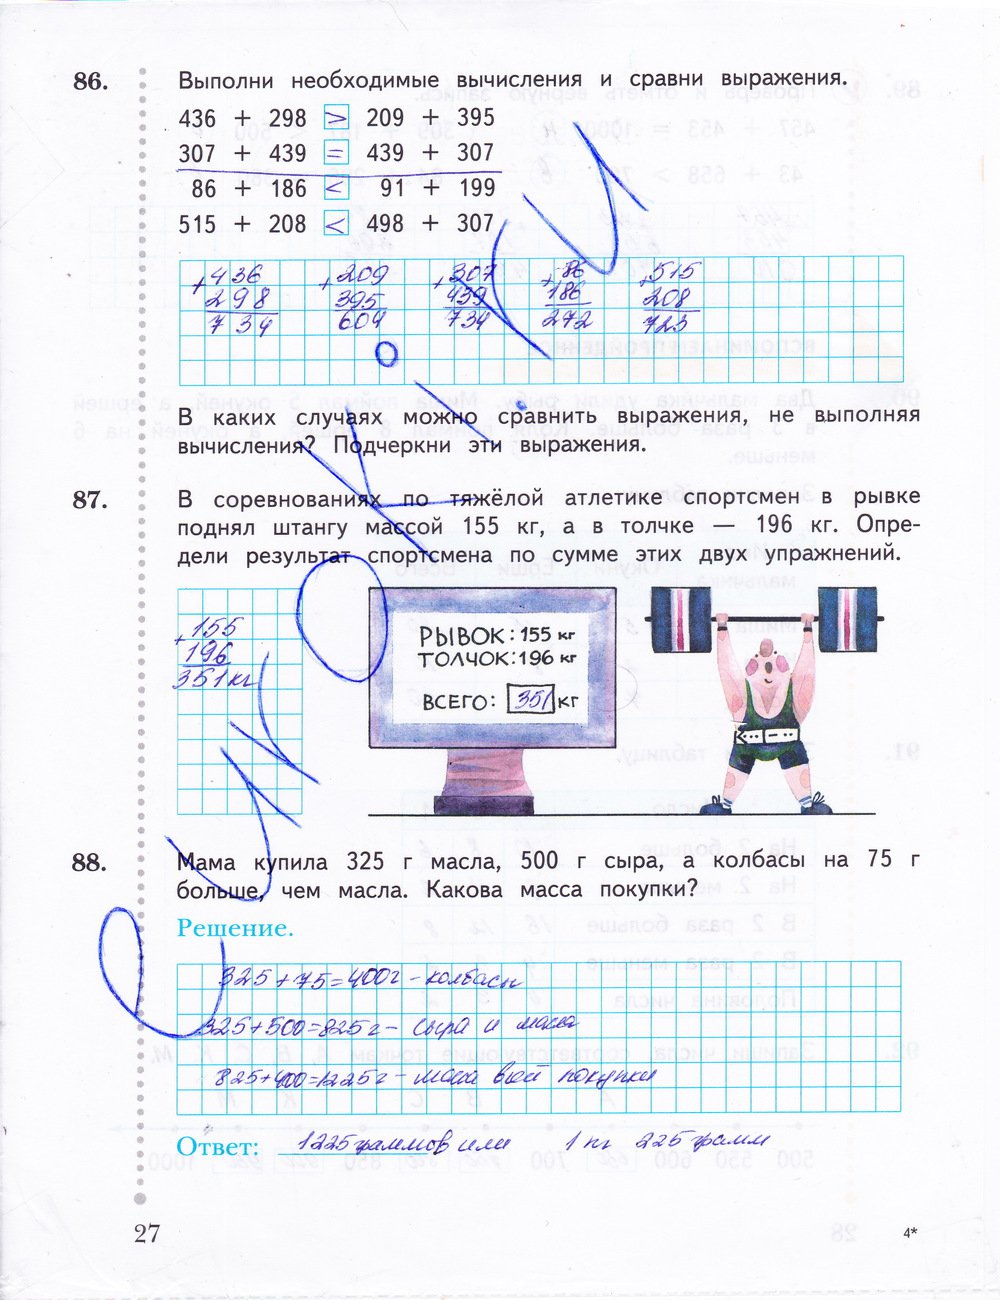 86. Выполни необходимые вычисления и сравни выражения.
436 + 298 > 209 + 395
307 + 439 = 439 + 307
86 + 186 < 91 + 199
515 + 208 < 498 + 307
+436 +209 +307 +86 +515
298 395 439 186 208
734 604 734 272 723
В каких случаях можно сравнить выражения, не выполняя
вычисления? Подчеркни эти выражения.
87. В соревнованиях по тяжёлой атлетике спортсмен в рывке
поднял штангу массой 155 кг, а в толчке — 196 кг. Опре-
дели результат спортсмена по сумме этих двух упражнений.
+155
196
351кг
РЫВОК: 155 кг
ТОЛЧОК: 196 кг
ВСЕГО: 351 кг
88. Мама купила 325 г масла, 500 г сыра, а колбасы на 75 г
больше, чем масла. Какова масса покупки?
Решение.
325+75=400г - колбасы
325+500=825г - сыра и масла
825+400=1225г - масса всей покупки
Ответ: 1225 граммов или 1 кг 225 грамм
27
4*